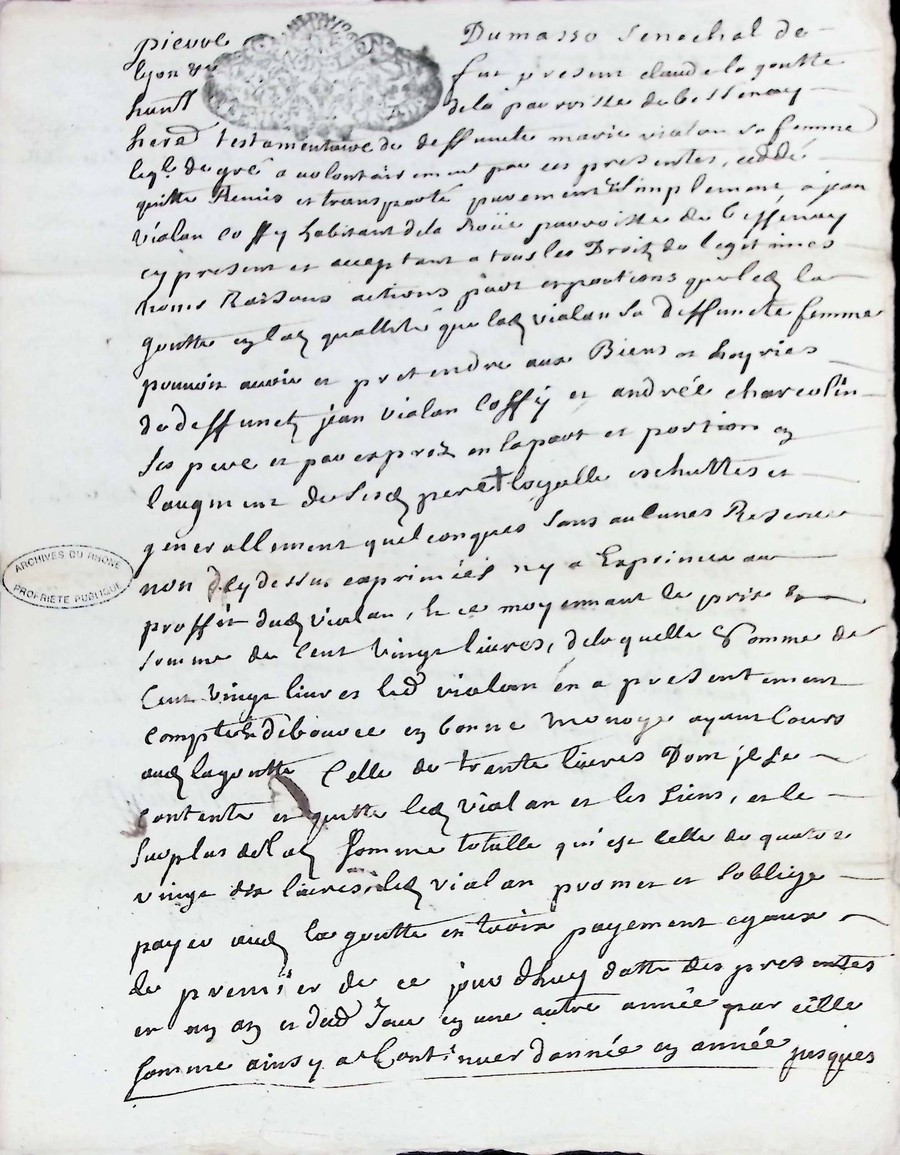 pierre Dumasso Senechal de
lyon & fut present claude la goutte
hant de la parroisse de bessenay
hered testamentaire de deffuncte marie vialan sa femme
leql de gré a volontairement par ces presentes, ceddé
quitte Remis et transporté purement & simplement a jean
vialan Coffy habitant de la Roüe parroisse de bessenay
cy present et acceptant a tous les Droitz de legitimes
noms Raisons actions part et portions que led la
goutte en lad quallitté que lad vialan sa deffuncte femme
pouvoit avoir et pretendre aux Biens et hoyries
de deffunct jean vialan Coffy et andrée charcolin
ses pere et par exprez en la part et portion en
laugment de sesd pere loyalle eschuttes et
generallement quelconques sans aulcunes Reserve
non cy dessus exprimées ny a Exprimer au
proffit dud vialan, Et ce moyennant le prix &
somme de Cent Vingt livres, de laquelle Somme de
Cent Vingt livres led vialan en a presentement
compté & débourcé en bonne monoye ayant Cours
aud lagoutte Celle de trente livres Dont jl se
Contente et quitte led Vialan et les siens, et le
Surplus de lad Somme totalle qui est Celle de quatre
vingt dix livres led vialan promet et soblige
payer aud la goutte en trois payement egaux
le premier de ce jour dhuy datte des presentes
en un an et dud Jour en une autre année par eille
somme ainsy a Continuer dannée en année jusques
ARCHIVES DU RHONE
PROPRIETE PUBLIQUE